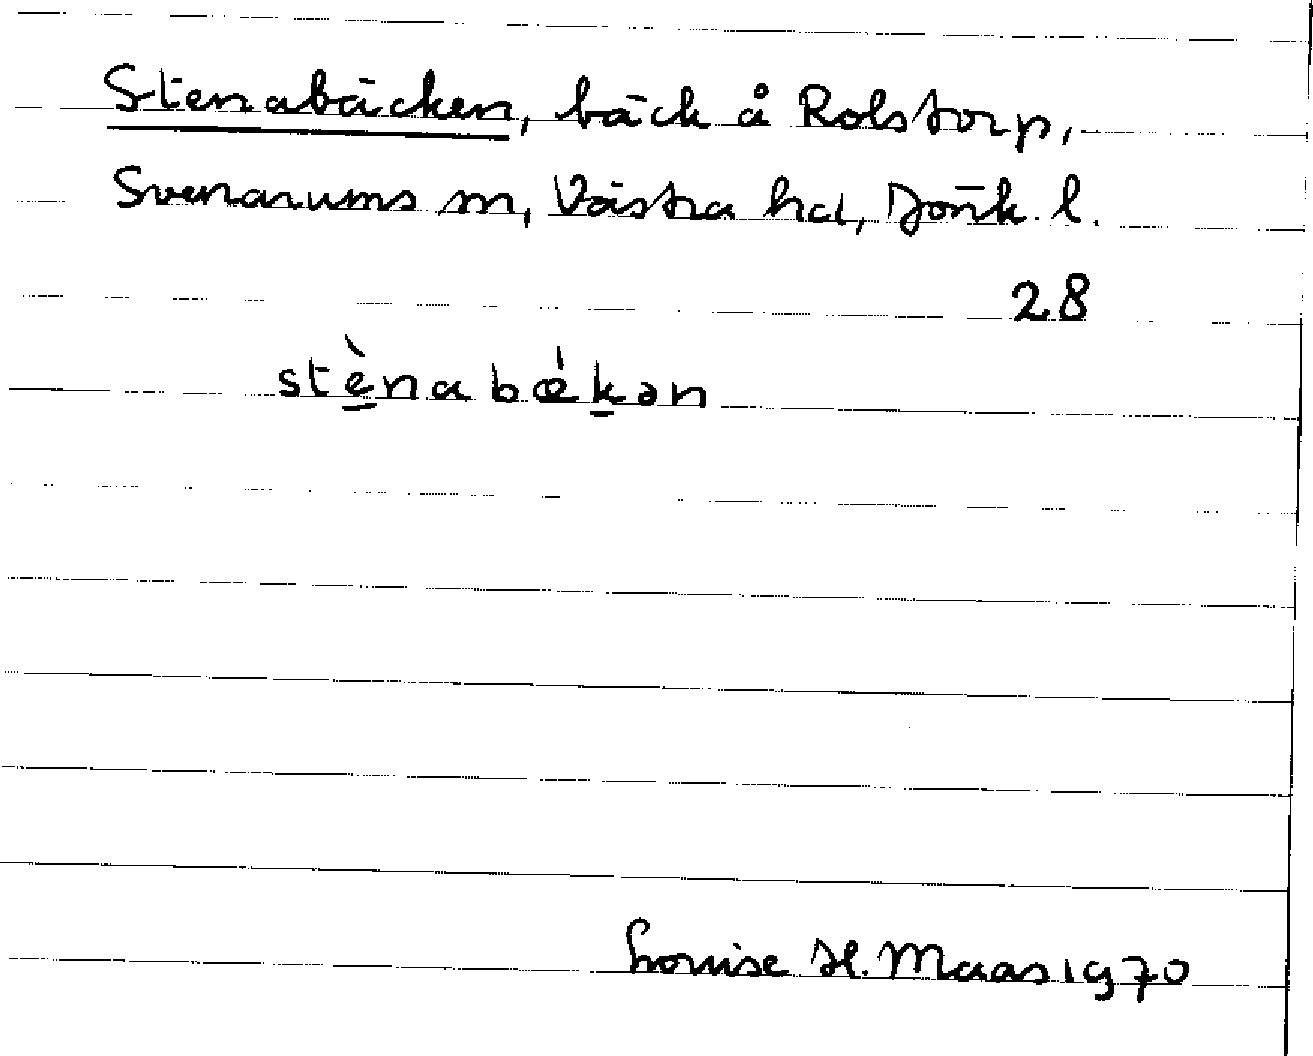 Stenabäcken, bäck å Rolstorp,
Svenarums sn, Västra hd, Jönk. l.
28
stè̠nabǽk̠ən
Louise H. Maas 1970